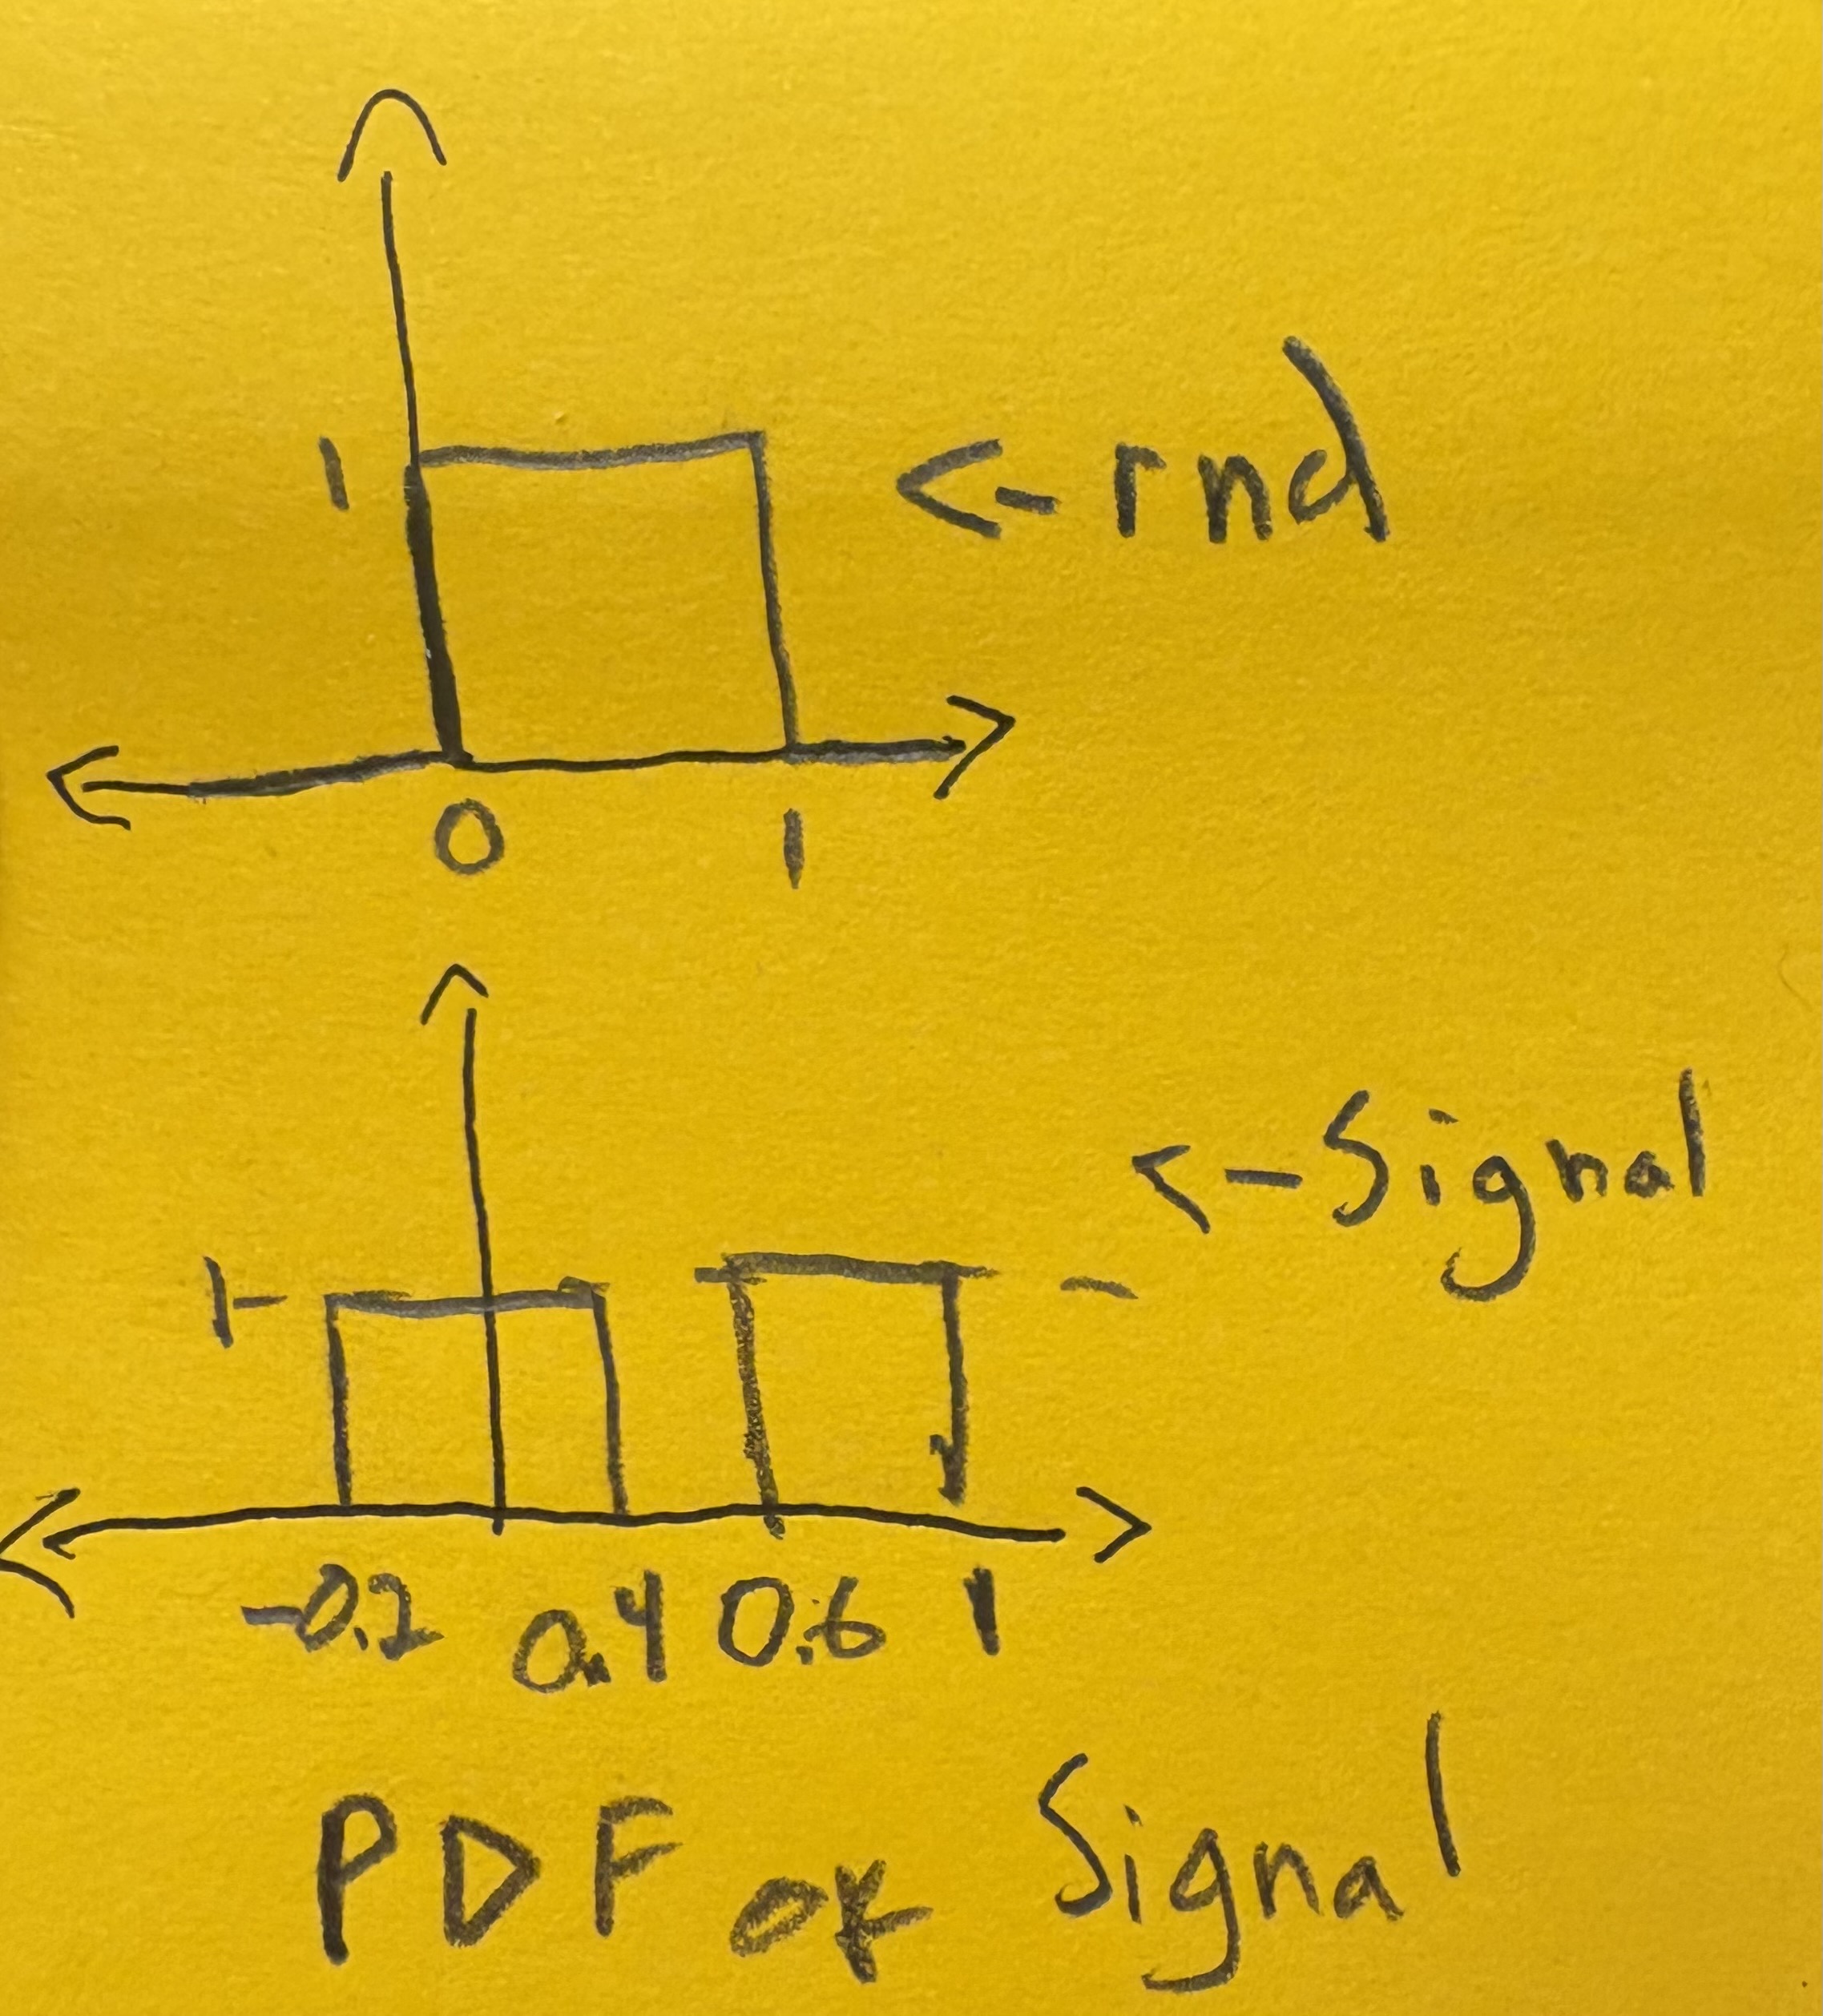 1 <- rnd
0 1
<- Signal
1-
-0.2 0.4 0.6 1
PDF of Signal